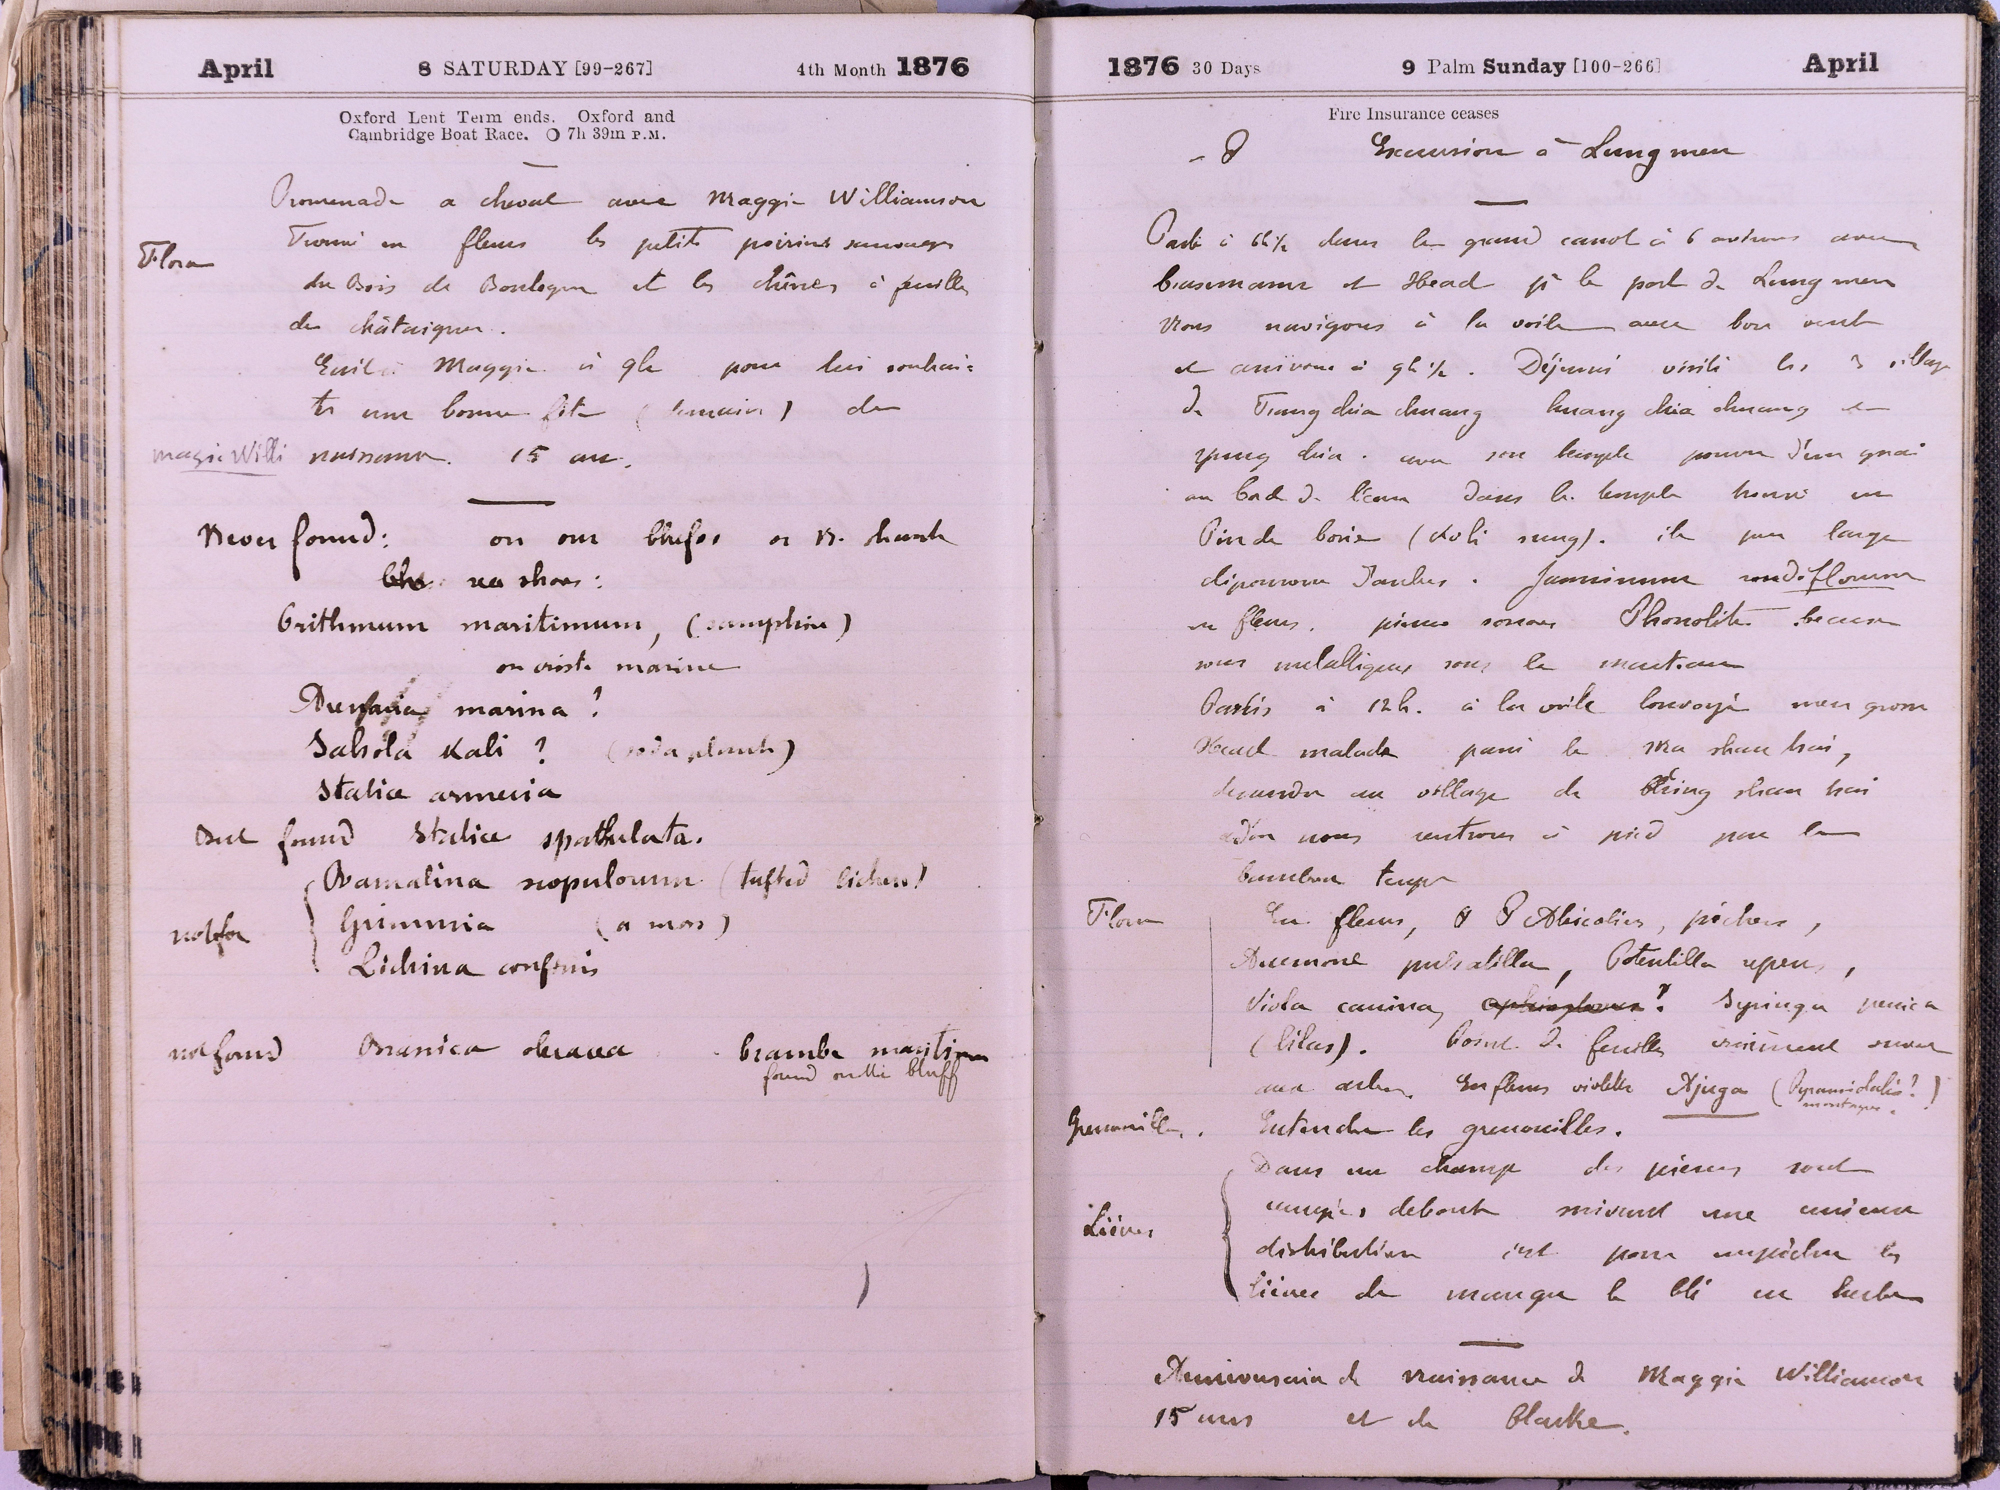 April 8 SATURDAY [99-267] 4th Month 1876
Oxford Lent Term ends. Oxford and
Cambridge Boat Race. O 7h 39m P.M.
Promenade a cheval avec Maggie Williamson
Flora
Trouvé en fleurs les petits poiriers sauvages
du Bois de Boulogne et les chênes à feuilles
de châtaigner.
Ecrit à Maggie à 9h pour lui souhai=
ter une bonne fête (demain) de
magie Willi
naissance. 15 ans.
Never found: on our bluffs or N. shark
sea shores:
Crithmum maritimum, (samphire)
ou criste marine
Arenaria marina?
Salsola Kali? (soda plant)
Statice armeria
But found Statice spathulata.
Ramalina scopulorum (tufted lichen)
not for
Grimmia (a moss)
Lichina confinis
not found Brassica oleracea Crambe maritima
found on the bluff
1876 30 Days 9 Palm Sunday [100-266] April
Fire Insurance ceases
Excursion à Lungmen
Parti à 6h½ dans le grand canot à 6 avirons avec
et Head pr le port de Lungmen
Nous navigons à la voile avec bon vent
et arrivons à 9h½. Déjeuné visité les 3 villages
de Tung chia chuang huang chia chuang et
yung chia. avec son temple pourvu d'un quai
au bord de l'eau dans le temple trouvé un
Pin de (Kuli sung). ile peu large
dépourvue d'arbres. Jasminum nudiflorum
en fleurs. pierres sonores Phonolite
sons metalliques sous le marteau
Partis à 12h. à la voile louvoyé mer grosse
Head malade passé le Ma shan hai,
descendu au village de Ching shan hai
d'ou nous rentrons à pied par le
beau temps
Flora
En fleurs, Abricotiers, pêchers,
Anemone pulsatilla, Potentilla repens,
Viola canina, ? Syringa persica
(lilas). Point de feuilles vraiment
aux arbres. En fleurs violettes Ajuga (Pyramidalis?)
Grenouilles.
Entendu les grenouilles.
Dans un champ des pierres sont
rangées debout suivant une curieuse
Lièvres
distribution c'est pour empêcher les
lièvres de manger le blé en herbe
Anniversaire de naissance de Maggie Williamson
15 ans et de Clarke.